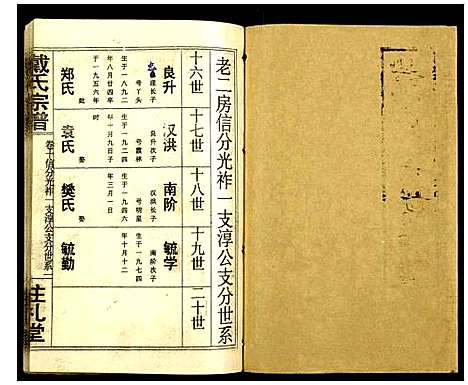 老二房信分光祚一支淳公支分世系
十六世 十七世 十八世 十九世 二十世
良升
汉洪
南阶
毓学
谨长子
良升次子
汉洪长子
南阶次子
号丫头
号霞林
号明星
生于一八九二
生于一九四六
生于一九七四
年八月廿四卒
年十月十二
年三月一日
于一九五六年
郑氏
袁氏
樊氏
毓勤
戴氏宗谱
卷十信分光祚一支淳公支分世系
注礼堂